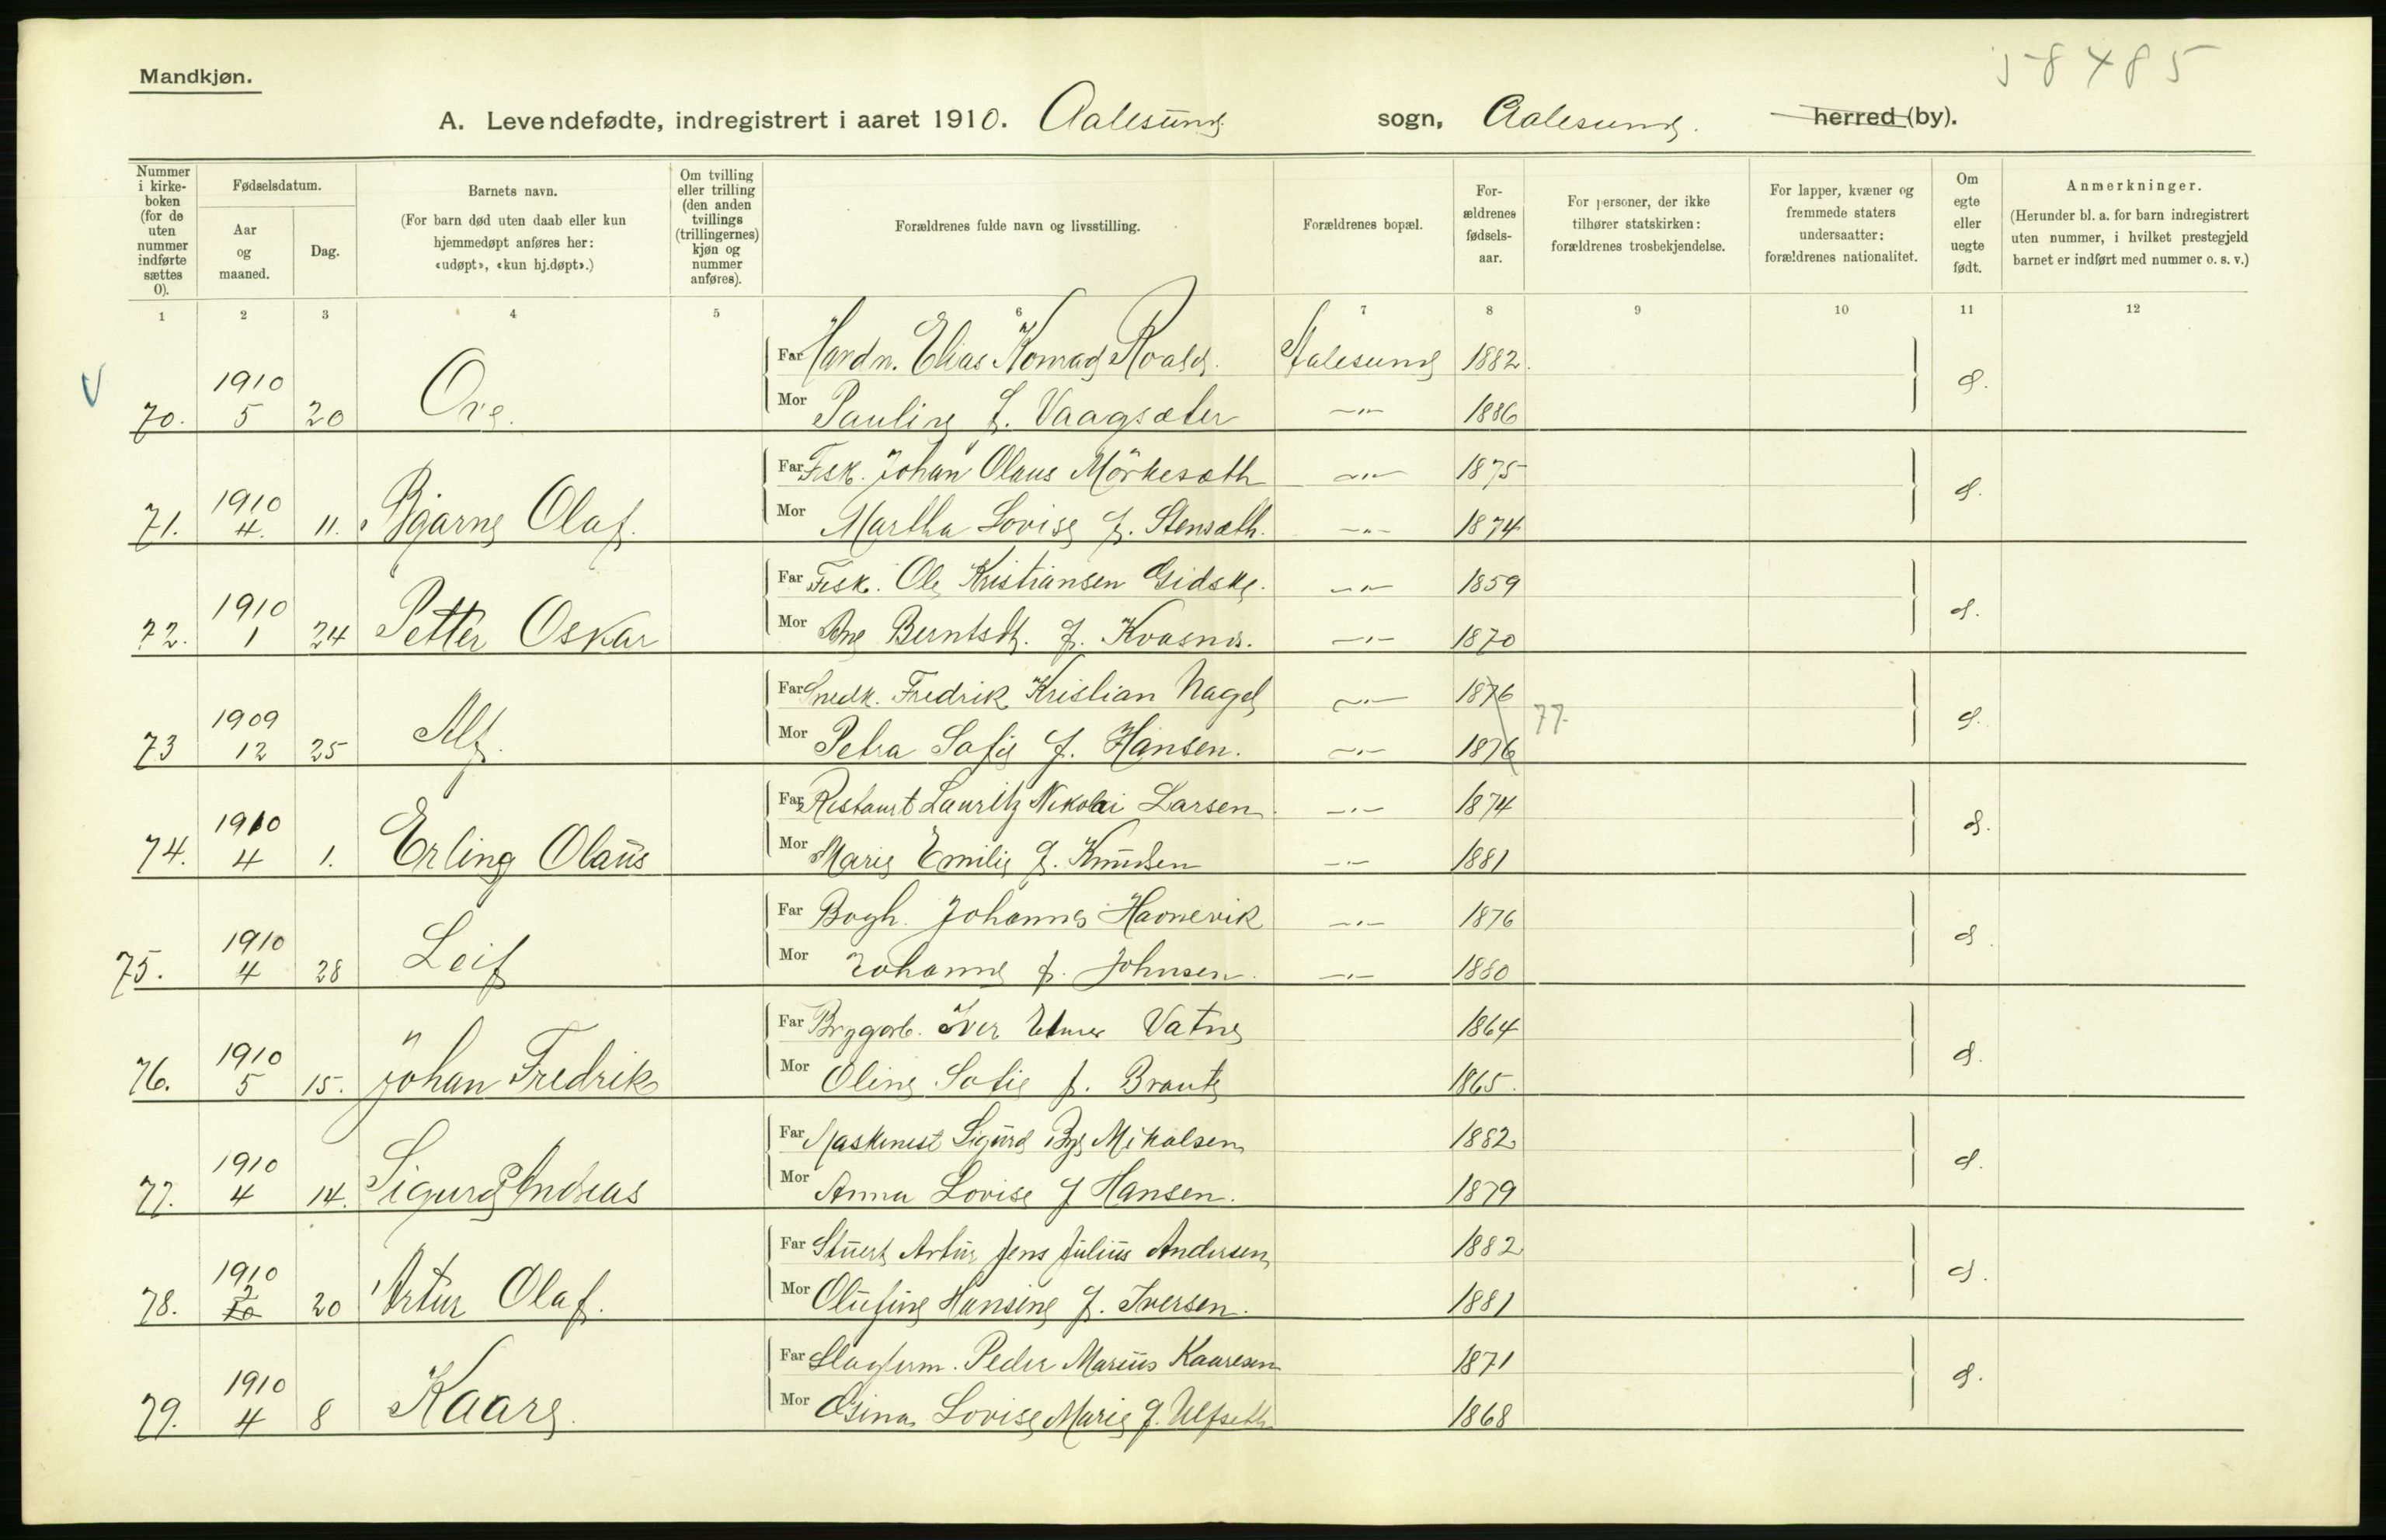 58485
Mandkjøn.
A. Levendefødte, indregistrert i aaret 1910. Aalesund sogn, Aalesund. herred (by).
Nummer i kirke-boken (for de uten nummer indførte sættes 0).
Fødselsdatum.
Aar og maaned.
Dag.
Barnets navn.
(For barn død uten daab eller kun hjemmedøpt anføres her: «udøpt», «kun hj.døpt».)
Om tvilling eller trilling (den anden tvillings (trillingernes) kjøn og nummer anføres).
Forældrenes fulde navn og livsstilling.
Forældrenes bopæl.
For-ældrenes fødsels-aar.
For personer, der ikke tilhører statskirken: forældrenes trosbekjendelse.
For lapper, kvæner og fremmede staters undersaatter: forældrenes nationalitet.
Om egte eller uegte født.
Anmerkninger.
(Herunder bl. a. for barn indregistrert uten nummer, i hvilket prestegjeld barnet er indført med nummer o. s. v.)
1 2 3 4 5 6 7 8 9 10 11 12
Far Handn. Elias Konrad Roald. Aalesund 1882.
V 70. 1910 5 20 Ove. Mor Pauline f. Vaagsæter —"— 1886 e.
Far Fisk. Johan Olaus Mörkesæth —"— 1875
71. 1910 4. 11. Bjarne Olaf. Mor Martha Lovise f. Stensæth. —"— 1874 e.
Far Fisk. Ole Kristiansen Gidske. —"— 1859
72. 1910 1 24 Petter Oskar Mor Ane Berntsdt. f. Kvasnes. —"— 1870 e.
Far Snedk. Fredrik Kristian Nagel —"— 1876
73 1909 12 25 Alf. Mor Petra Sofie f. Hansen. —"— 1876 77 e.
Far Restaurt Lauritz Nikolai Larsen —"— 1874
74. 1910 4 1. Erling Olaus Mor Marie Emilie f. Knudsen —"— 1881 e.
Far Bogh. Johannes Havnevik —"— 1876
75. 1910 4 28 Leif Mor Johanne f. Johnsen. —"— 1880 e.
Far Bryggarb. Iver Elmer Vatne 1864
76. 1910 5 15. Johan Fredrik Mor Oline Sofie f. Brante 1865. e.
Far Maskinist Sigurd Mikalsen 1882
77. 1910 4 14. Sigurd Andreas Mor Anna Lovise f Hansen. 1879 e.
Far Stuert Artur Jens Julius Andersen 1882
78. 1910 2 10 20 Artur Olaf. Mor Olufine Hansine f. Iversen. 1881 e.
Far Slagterm. Peder Marius Kaaresen 1871
79. 1910 4 8 Kaare. Mor Gina Lovise Marie f. Ulfseth 1868 e.